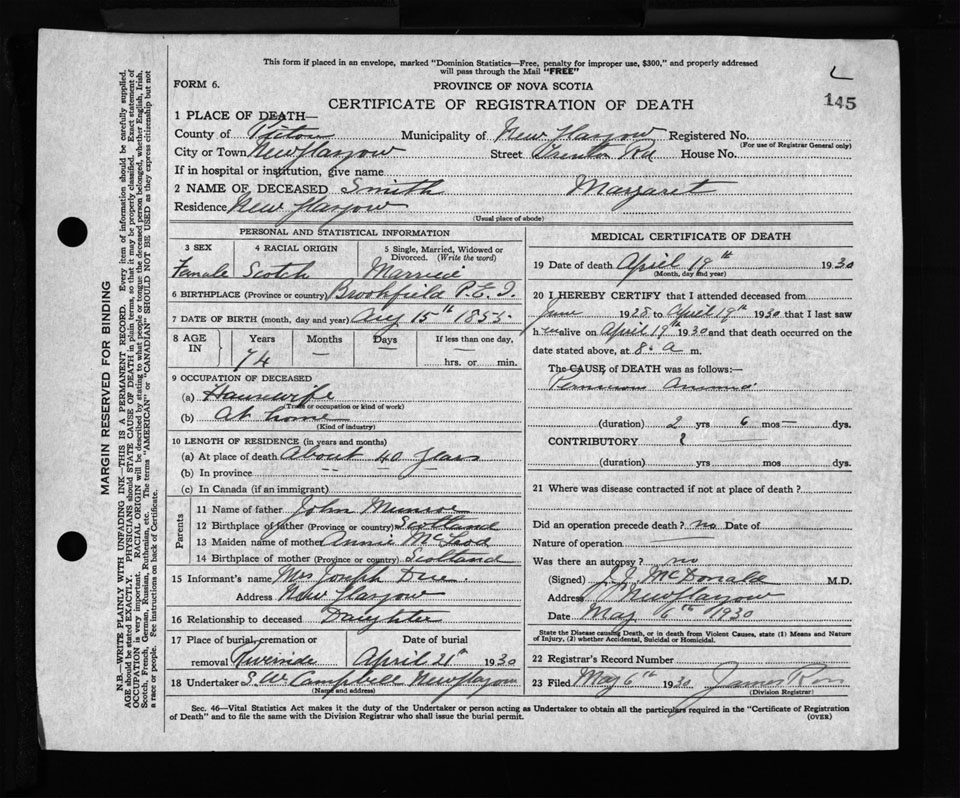 This form if placed in an envelope, marked "Dominion Statistics—Free, penalty for improper use, $300," and properly addressed
will pass through the Mail "FREE"
FORM 6.
PROVINCE OF NOVA SCOTIA
145
CERTIFICATE OF REGISTRATION OF DEATH
1 PLACE OF DEATH—
County of Pictou Municipality of New Glasgow Registered No.
(For use of Registrar General only)
City or Town New Glasgow Street Trenton Rd House No.
If in hospital or institution, give name
2 NAME OF DECEASED Smith Margaret
Residence New Glasgow
(Usual place of abode)
PERSONAL AND STATISTICAL INFORMATION
3 SEX 4 RACIAL ORIGIN 5 Single, Married, Widowed or Divorced. (Write the word)
Female Scotch Married
6 BIRTHPLACE (Province or country) Brookfield P.E.I.
7 DATE OF BIRTH (month, day and year) Aug 15th 1855
8 AGE IN Years Months Days If less than one day,
74 — — hrs. or min.
9 OCCUPATION OF DECEASED
(a) Housewife
(Trade or occupation or kind of work)
(b) At home
(Kind of industry)
10 LENGTH OF RESIDENCE (in years and months)
(a) At place of death About 40 years
(b) In province
(c) In Canada (if an immigrant)
Parents
11 Name of father John Munroe
12 Birthplace of father (Province or country) Scotland
13 Maiden name of mother Annie McLeod
14 Birthplace of mother (Province or country) Scotland
15 Informant's name Mrs Joseph
Address New Glasgow
16 Relationship to deceased Daughter
17 Place of burial, cremation or removal Riverside Date of burial April 21st 1930
18 Undertaker S.W. Campbell New Glasgow
(Name and address)
MEDICAL CERTIFICATE OF DEATH
19 Date of death April 19th 1930
(Month, day and year)
20 I HEREBY CERTIFY that I attended deceased from
June 1928 to April 19th 1930 that I last saw
h er alive on April 19th 1930 and that death occurred on the
date stated above, at 8 a m.
The CAUSE of DEATH was as follows:—
Pernicious Anemia
(duration) 2 yrs 6 mos — dys.
CONTRIBUTORY
(duration) yrs mos dys.
21 Where was disease contracted if not at place of death?
Did an operation precede death? no Date of
Nature of operation
Was there an autopsy? no
(Signed) J.J. McDonald M.D.
Address New Glasgow
Date May 6th 1930
State the Disease causing Death, or in death from Violent Causes, state (1) Means and Nature
of Injury, (2) whether Accidental, Suicidal or Homicidal.
22 Registrar's Record Number
23 Filed May 6th 1930 James Ross
(Division Registrar)
Sec. 46—Vital Statistics Act makes it the duty of the Undertaker or person acting as Undertaker to obtain all the particulars required in the "Certificate of Registration
of Death" and to file the same with the Division Registrar who shall issue the burial permit.
(OVER)
MARGIN RESERVED FOR BINDING
N.B.—WRITE PLAINLY WITH UNFADING INK—THIS IS A PERMANENT RECORD. Every item of information should be carefully supplied.
AGE should be stated EXACTLY. PHYSICIANS should STATE CAUSE OF DEATH in plain terms, so that it may be properly classified. Exact statement of
OCCUPATION is very important. RACIAL ORIGIN will be described by stating to what people or tongue the deceased person belonged, whether English, Irish,
Scotch, French, German, Russian, Ruthenian, etc. The terms "AMERICAN" or "CANADIAN" SHOULD NOT BE USED as they express citizenship but not
a race or people. See instructions on back of Certificate.